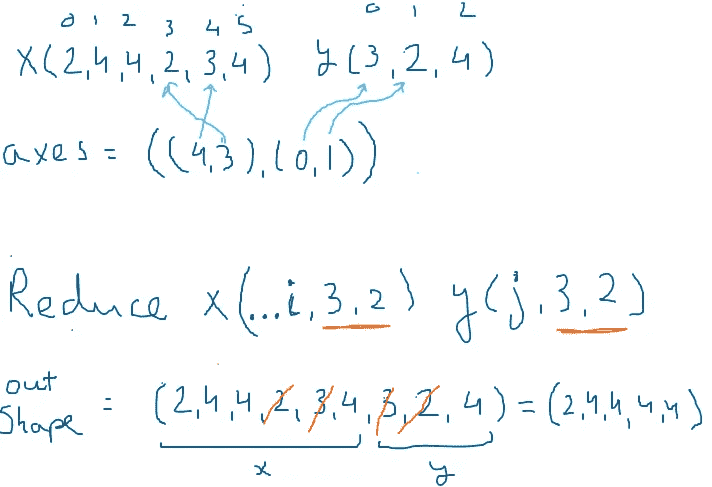 0 1 2 3 4 5 0 1 2
X(2,4,4,2,3,4) y(3,2,4)
axes = ((4,3),(0,1))
Reduce x(...i,3,2) y(j,3,2)
out
Shape = (2,4,4,2,3,4,3,2,4) = (2,4,4,4,4)
x y